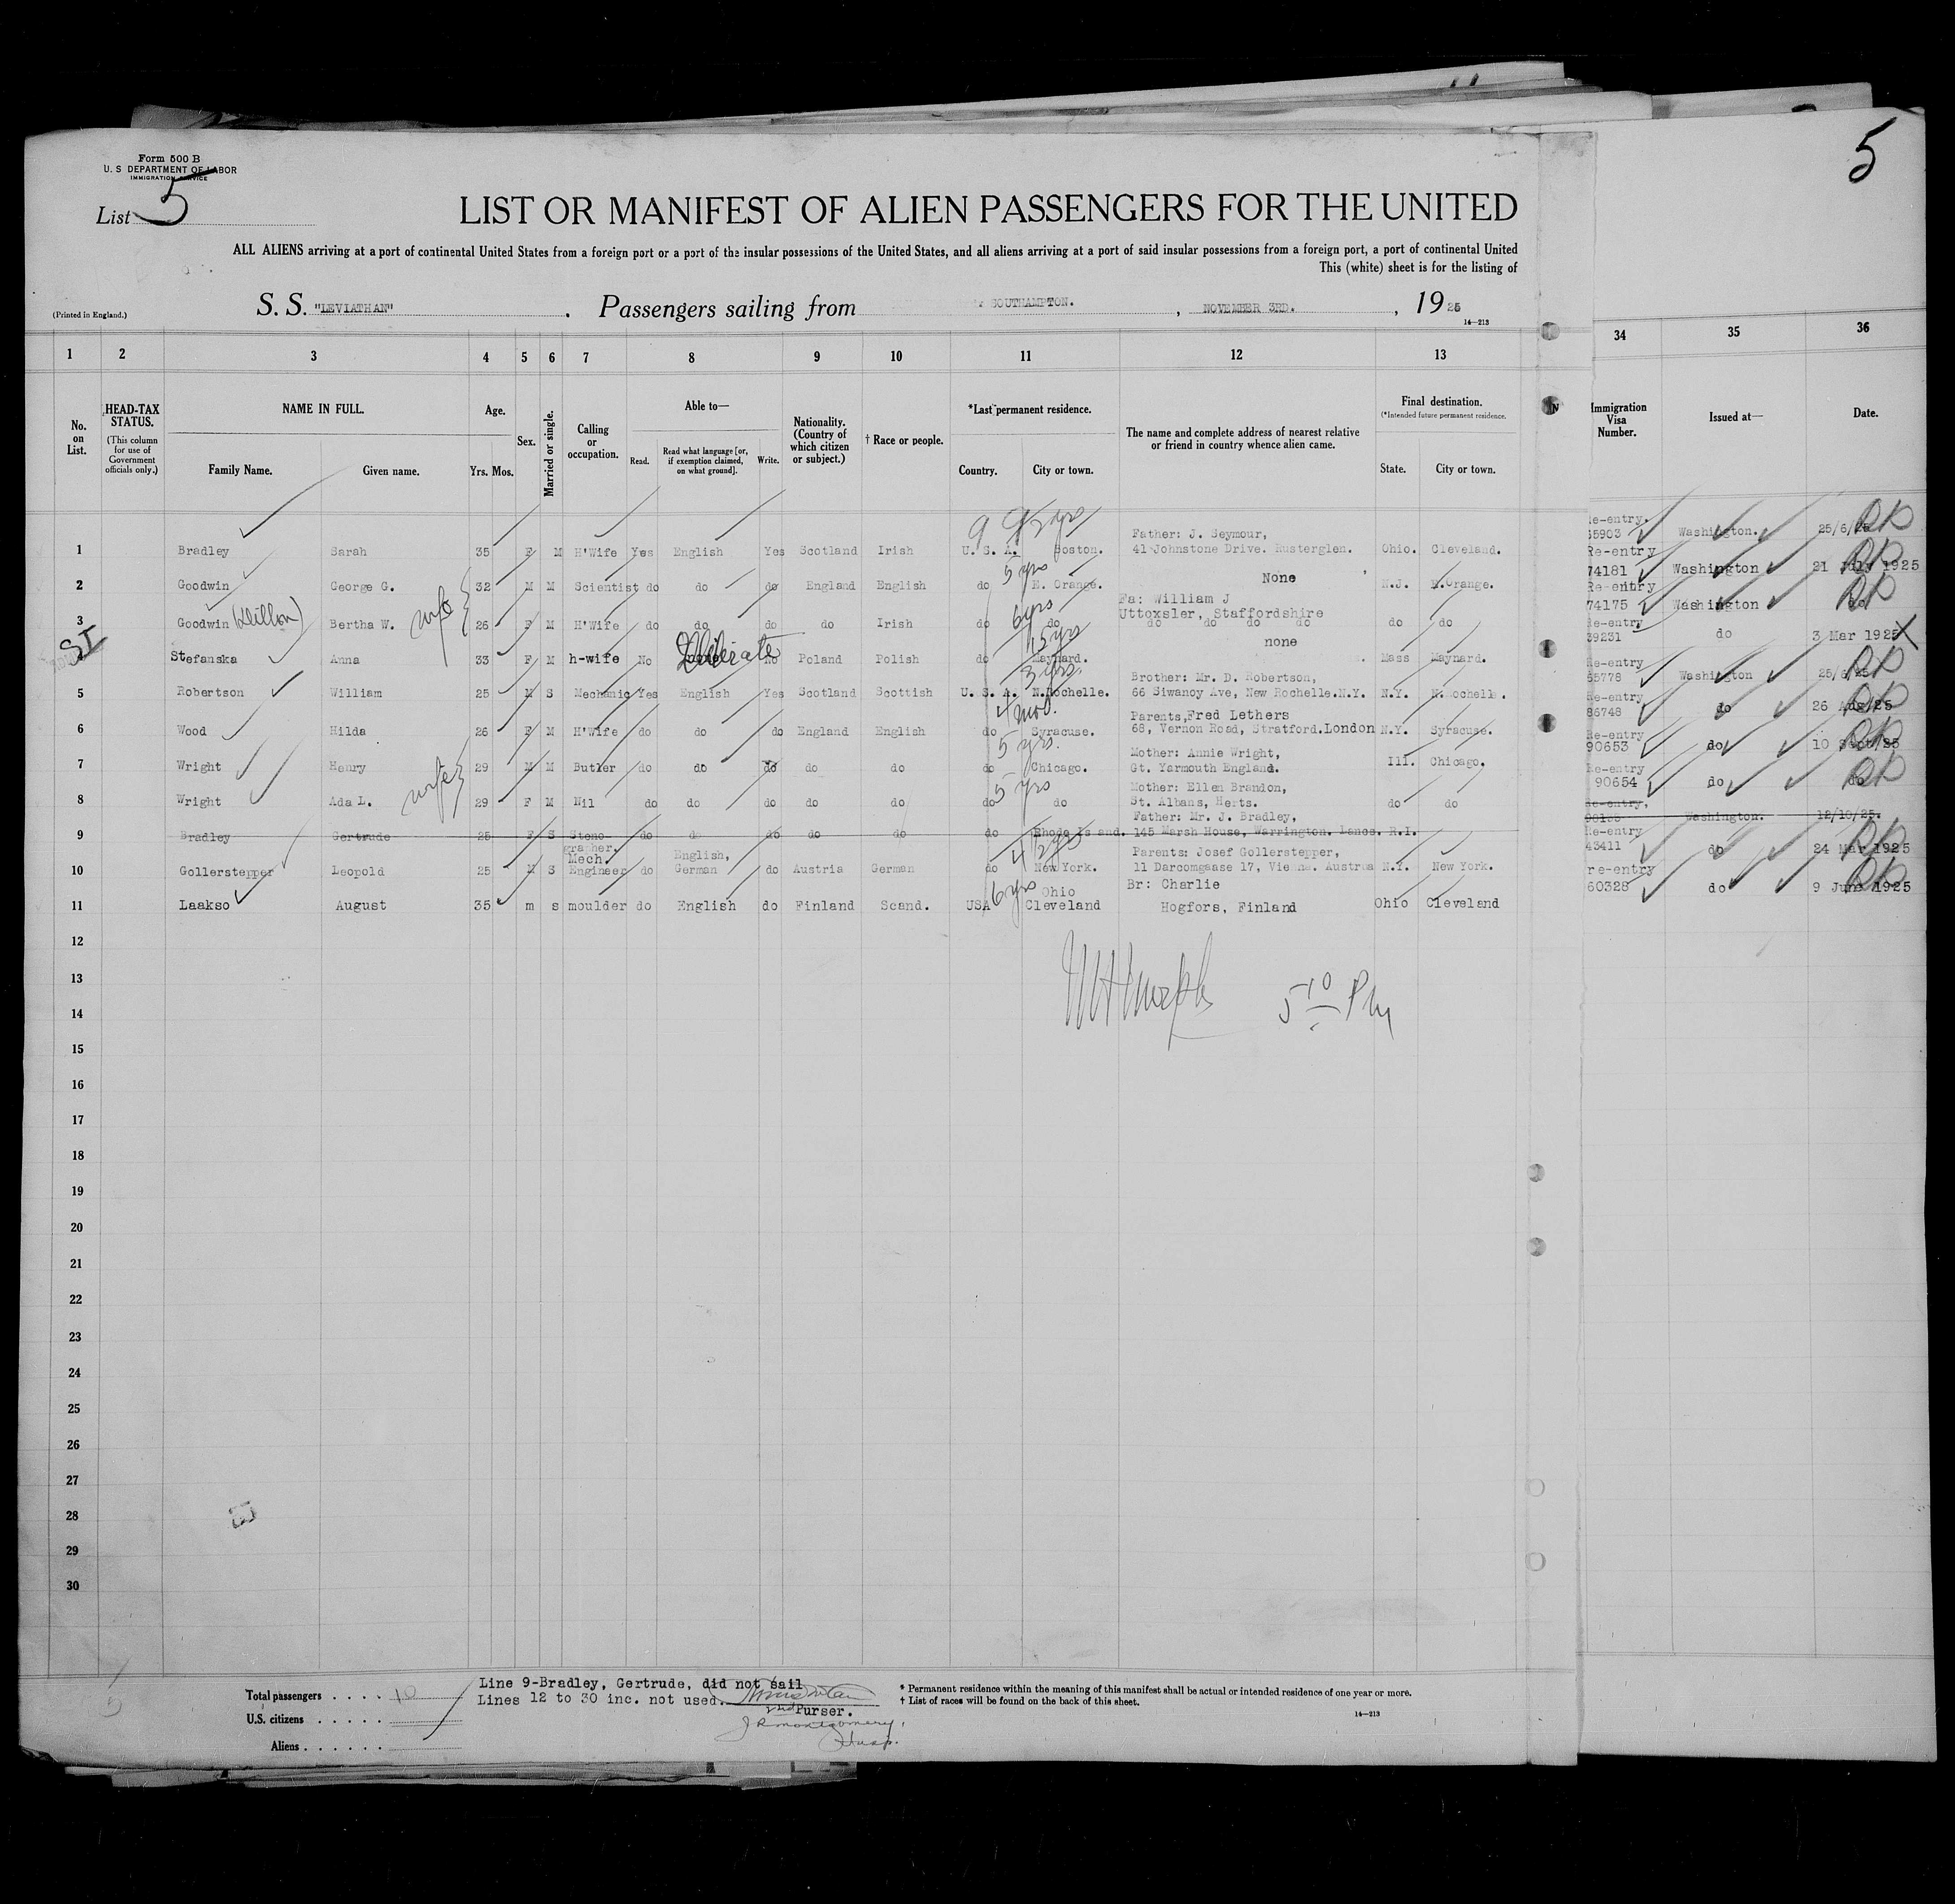 Form 500 B
U. S DEPARTMENT OF LABOR
IMMIGRATION SERVICE
List 5
5
LIST OR MANIFEST OF ALIEN PASSENGERS FOR THE UNITED
ALL ALIENS arriving at a port of continental United States from a foreign port or a port of the insular possessions of the United States, and all aliens arriving at a port of said insular possessions from a foreign port, a port of continental United
This (white) sheet is for the listing of
(Printed in England.)
S. S. "LEVIATHAN" . Passengers sailing from SOUTHAMPTON. , NOVEMBER 3RD. , 1925
14—213
1 2 3 4 5 6 7 8 9 10 11 12 13 34 35 36
No. on List.
HEAD-TAX STATUS.
(This column for use of Government officials only.)
NAME IN FULL.
Family Name. Given name.
Age.
Yrs. Mos.
Sex.
Married or single.
Calling or occupation.
Able to—
Read. Read what language [or, if exemption claimed, on what ground]. Write.
Nationality. (Country of which citizen or subject.)
† Race or people.
*Last permanent residence.
Country. City or town.
The name and complete address of nearest relative or friend in country whence alien came.
Final destination.
(*Intended future permanent residence.
State. City or town.
Immigration Visa Number.
Issued at—
Date.
9 9 1/2 yrs
Father: J. Seymour, Re-entry.
1 Bradley Sarah 35 F M H'Wife Yes English Yes Scotland Irish U. S. A. Boston. 41 Johnstone Drive. Rusterglen. Ohio. Cleveland. 65903 Washington. 25/6/25
5 yrs Re-entry
2 Goodwin George G. 32 M M Scientist do do do England English do E. Orange. None N.J. E.Orange. 74181 Washington 21 July 1925
wife 6 yrs Fa: William J Re-entry
Uttoxsler, Staffordshire
3 Goodwin (Dillon) Bertha W. 26 F M H'Wife do do do do Irish do do do do do do do do 74175 Washington do
SI Illiterate 15 yrs Re-entry
Stefanska Anna 33 F M h-wife No No Poland Polish do Maynard. none Mass Maynard. 39231 do 3 Mar 1925 X
3 yrs. Brother: Mr. D. Robertson, Re-entry
5 Robertson William 25 M S Mechanic Yes English Yes Scotland Scottish U. S. A. N.Rochelle. 66 Siwanoy Ave, New Rochelle.N.Y. N.Y. N.Rochelle. 65778 Washington 25/6/25
4 mos. Parents, Fred Lethers Re-entry
6 Wood Hilda 26 F M H'Wife do do do England English do Syracuse. 68, Vernon Road, Stratford.London N.Y. Syracuse. 86748 do 26 Aug/25
5 yrs. Mother: Annie Wright, Re-entry
7 Wright Henry 29 M M Butler do do do do do do Chicago. Gt. Yarmouth England. Ill. Chicago. 90653 do 10 Sept/25
wife 5 yrs Mother: Ellen Brandon, Re-entry
8 Wright Ada L. 29 F M Nil do do do do do do do St. Albans, Herts. do do 90654 do do
Father: Mr. J. Bradley, Re-entry,
9 Bradley Gertrude 25 F S Steno- do do do do do do Rhode Island. 145 Marsh House, Warrington. Lancs. R.I. Washington. 12/10/25.
grapher.
Mech. English, 4 1/2 yrs Parents: Josef Gollerstepper, Re-entry
10 Gollerstepper Leopold 25 M S Engineer do German do Austria German do New York. 11 Darcomgasse 17, Vienna. Austria N.Y. New York. 43411 do 24 Mar 1925
6 yrs Ohio Br: Charlie re-entry
11 Laakso August 35 m s moulder do English do Finland Scand. USA Cleveland Hogfors, Finland Ohio Cleveland 60328 do 9 June 1925
12
13
5 10 PM
14
15
16
17
18
19
20
21
22
23
24
25
26
27
28
29
30
Total passengers . . . . 10
U.S. citizens . . . . .
Aliens . . . . . .
Line 9-Bradley, Gertrude, did not sail
Lines 12 to 30 inc. not used.
2nd Purser.
J R Montgomery,
* Permanent residence within the meaning of this manifest shall be actual or intended residence of one year or more.
† List of races will be found on the back of this sheet.
14—213